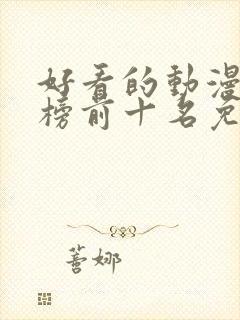 好看的動漫
榜前十名免
薔娜